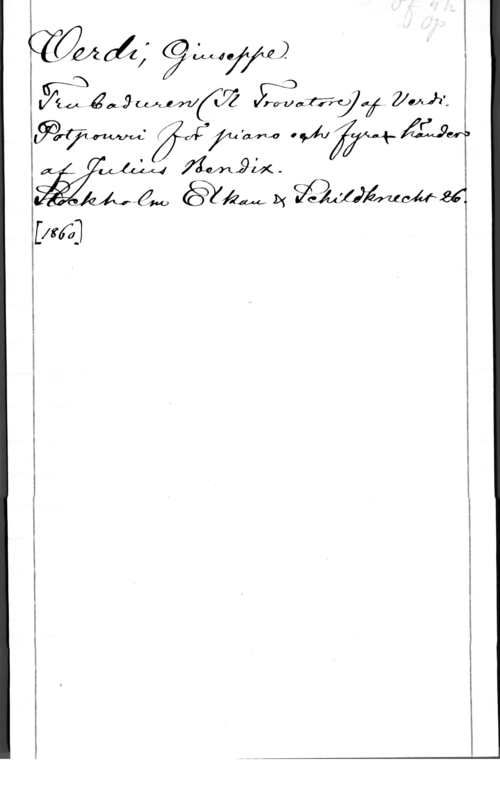 Verdi, Giuseppe.
Trubaduren (Il Trovatore) af Verdi.
Potpourri för piano och fyra händer
af Julius Bendix.
Stockholm Elkan & Schildknecht 26.
[1860]